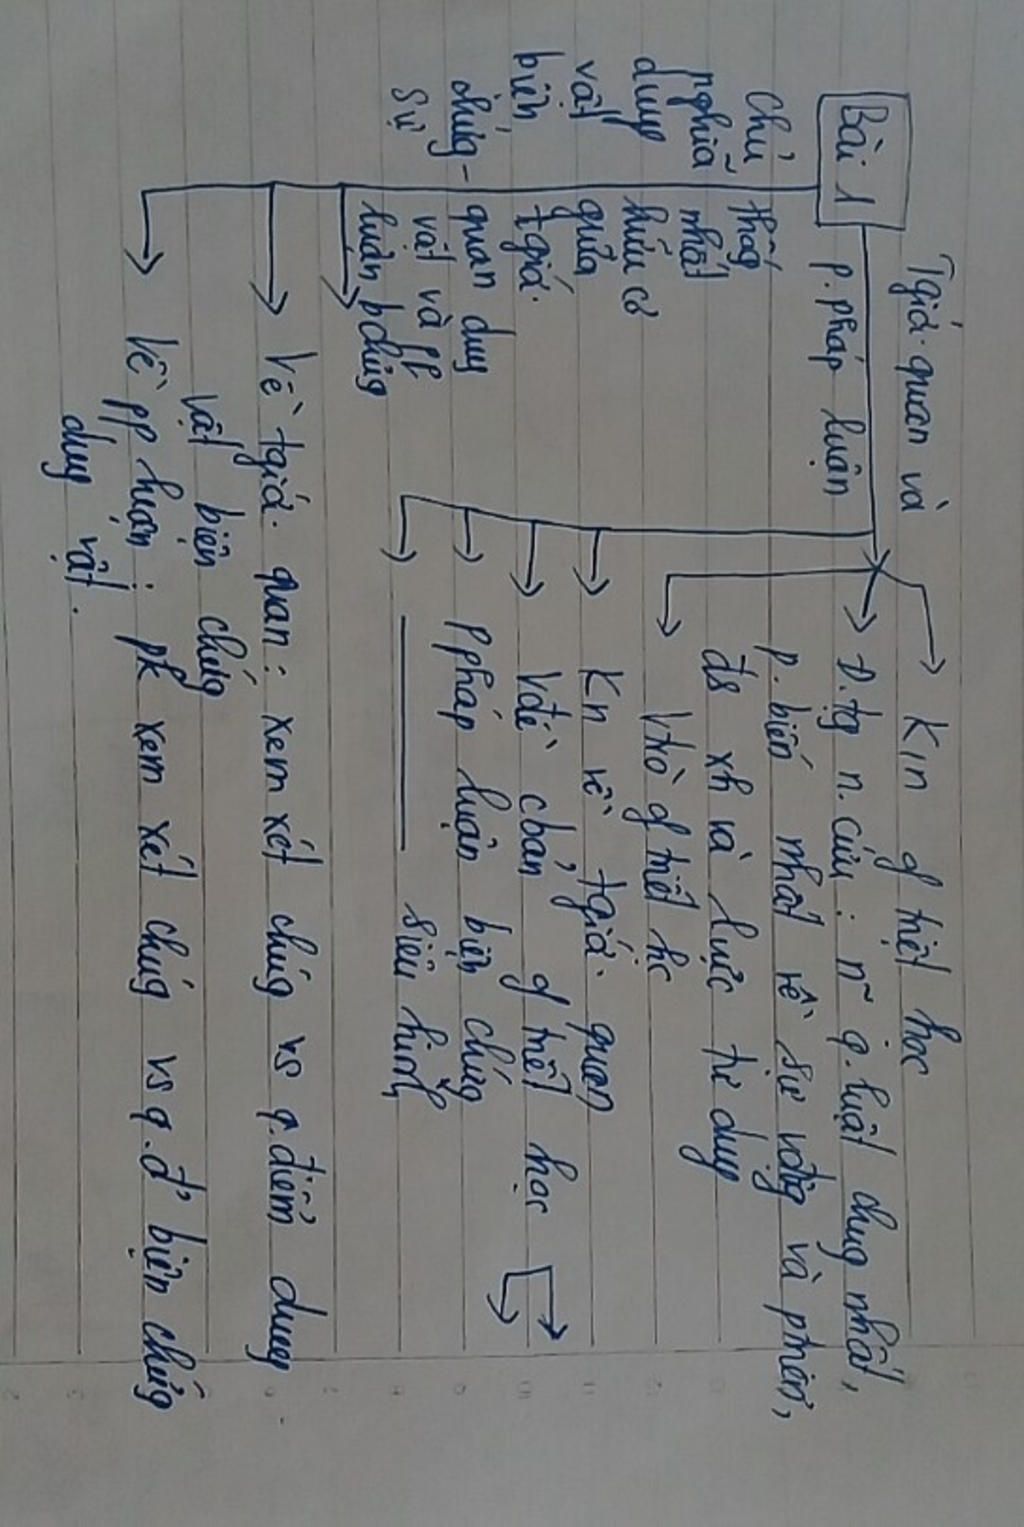 Tgiá. quan và
p. pháp luận
Bài 1
K/n. of triết học
Đ.tg n.cứu: n~ q.luật chug nhất,
p.biến nhất về sự vđộg và ptriển,
đs xh và lực tư duy
Vtrò of triết học
Kn về tgiá. quan
Vđề cbản of triết học
Ppháp luận biện chứg
siêu hình
Chủ
nghĩa
duy
vật
biện
chứng -
Sự
thốg
nhất
hữu cơ
giữa
tgiá.
quan duy
vật và pp
luận bchứg
Về tgiá. quan: xem xét chúg vs q.điểm duy
vật biện chứg
Về pp luận: pk xem xét chúg vs q.đ' biện chứg
duy vật.